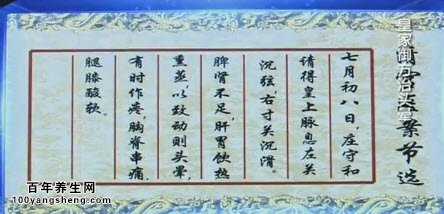 皇家御方治头晕
清宫医案节选
七月初八日,庄守和
请得皇上脉息左关
沉弦,右寸关沉滑。
脾肾不足,肝胃饮热
熏蒸,以致动则头晕,
有时作疼,胸脊串痛,
腿膝酸软。
百年养生网
100yangsheng.com